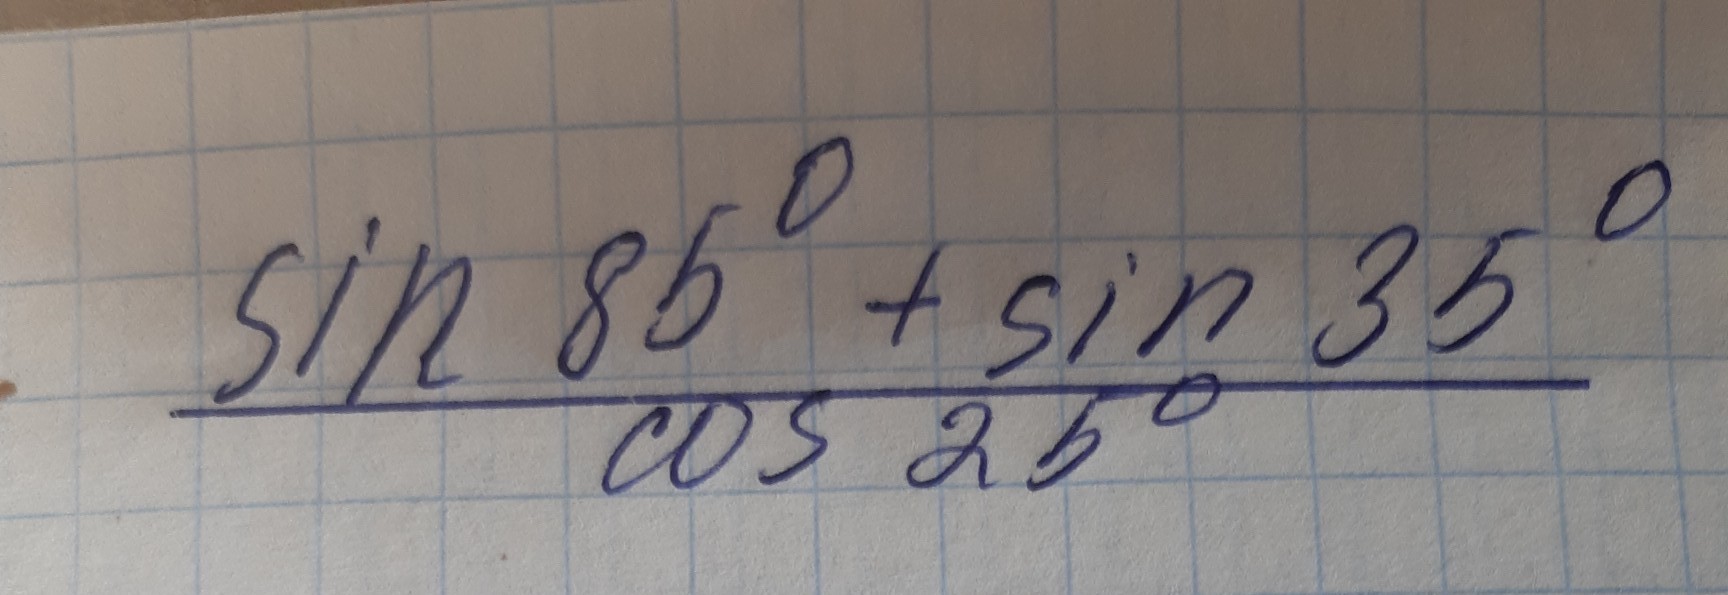 sin 85° + sin 35°
cos 25°